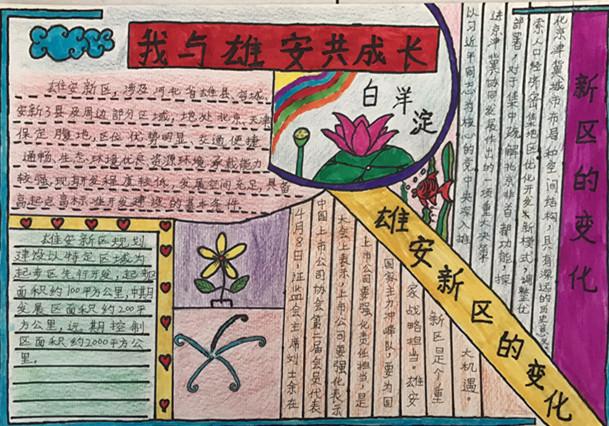 我与雄安共成长
雄安新区，涉及河北省雄县、容城、
安新3县及周边部分区域，地处北京、天津、
保定腹地，区位优势明显、交通便捷
通畅、生态环境优良、资源环境承载能力
较强，现有开发程度较低，发展空间充足，具备
高起点高标准开发建设的基本条件。
白洋淀
雄安新区规划
建设以特定区域为
起步区先行开发，起步区
面积约100平方公里，中期
发展区面积约200平
方公里，远期控制
区面积约2000平方公
里。
雄安新区的变化
新区的变化
以习近平同志为核心的党中央深入推
进京津冀协同发展作出的一项重大决策
部署，对于集中疏解北京非首都功能，探
索人口经济密集地区优化开发新模式，调整优
化京津冀城市布局和空间结构，具有深远的历史意义
4月8日，证监会主席刘士余在
中国上市公司协会第二届会员代表
大会上表示，上市公司要强化表示
上市公司要强化责任担当，是
国家主力冲锋队，要为国
家战略担当。雄安
新区是个重
大机遇。